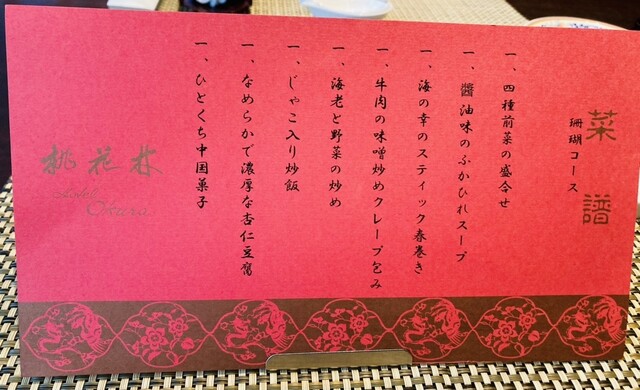 菜譜
珊瑚コース
一、四種前菜の盛合せ
一、醬油味のふかひれスープ
一、海の幸のスティック春巻き
一、牛肉の味噌炒めクレープ包み
一、海老と野菜の炒め
一、じゃこ入り炒飯
一、なめらかで濃厚な杏仁豆腐
一、ひとくち中国菓子
桃花林
Hotel Okura